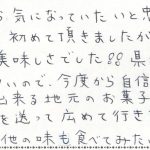 お気になっていたいと思
初めて頂きましたが
美味しさでした!! 県
いので、今度から自信
出来る地元のお菓子
を送って広めて行き
他の味も食べてみたい